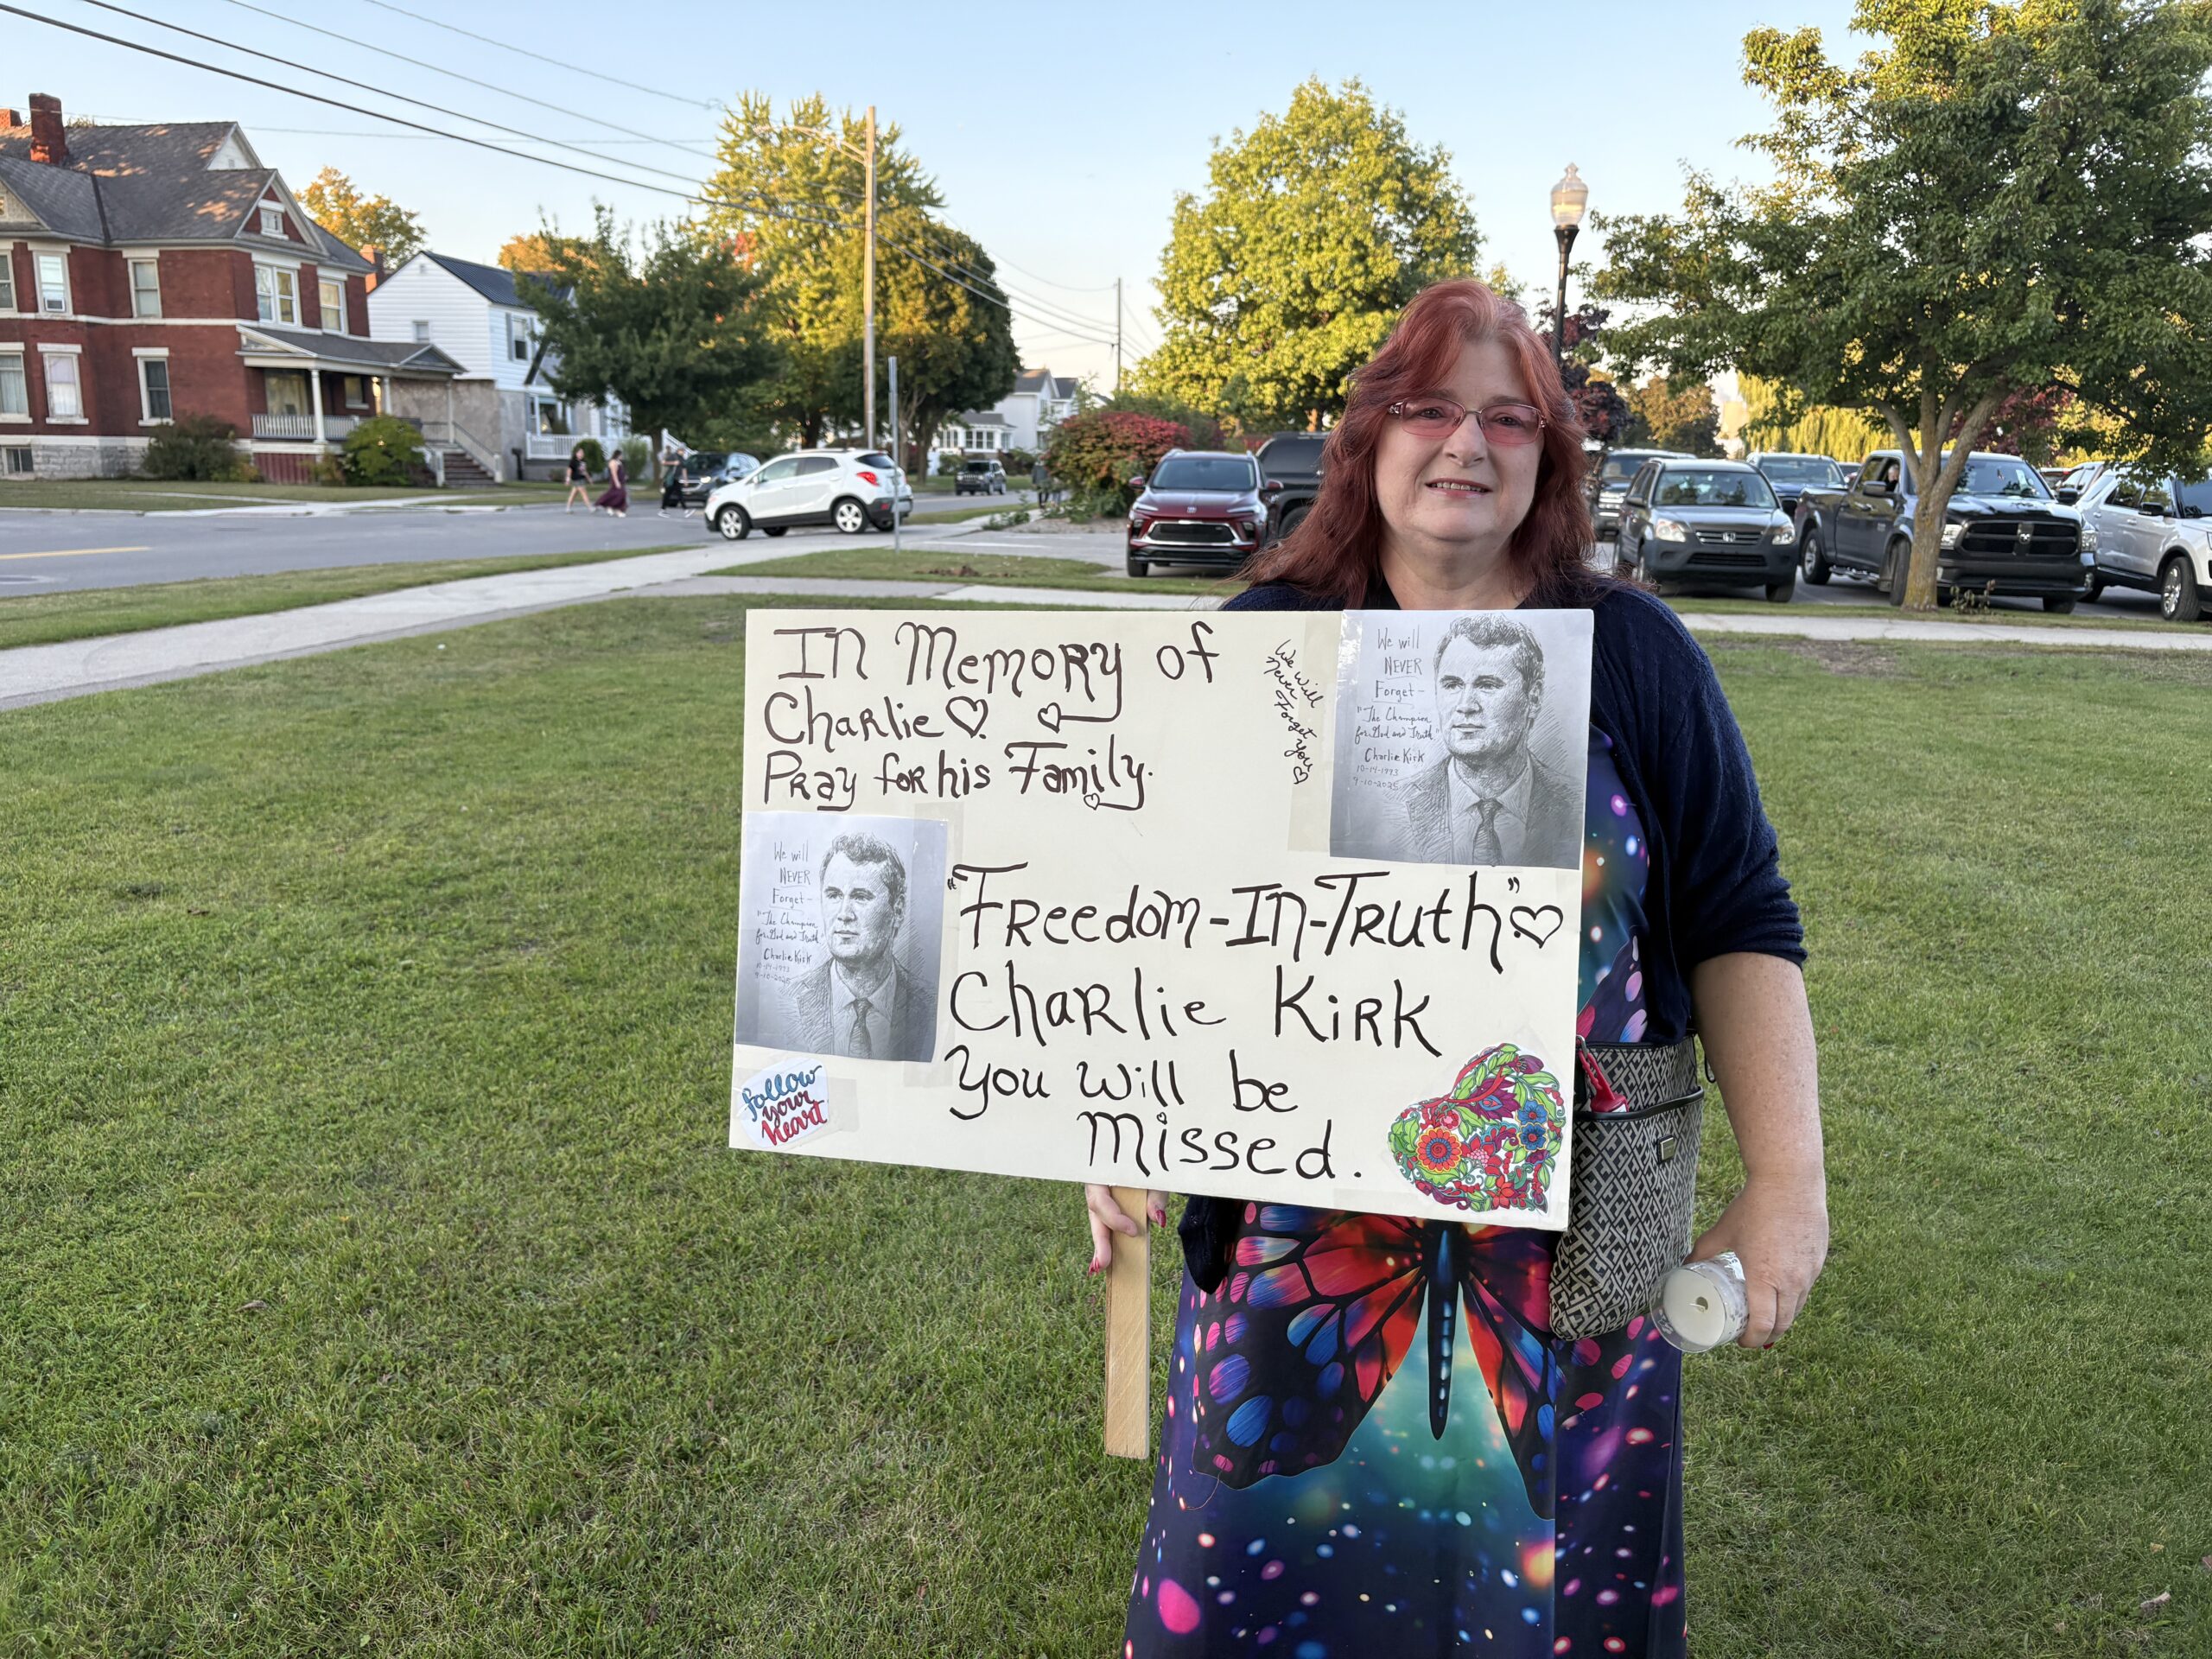 In Memory of
Charlie
Pray for his Family.
We will
Never
Forget
you
We will
NEVER
Forget-
"The Champion
for God and Truth"
Charlie Kirk
10-14-1993
9-10-2025
We will
NEVER
Forget-
"The Champion
for God and Truth"
Charlie Kirk
10-14-1993
9-10-2025
"Freedom-In-Truth"
Charlie Kirk
You will be
Missed.
follow
your
heart